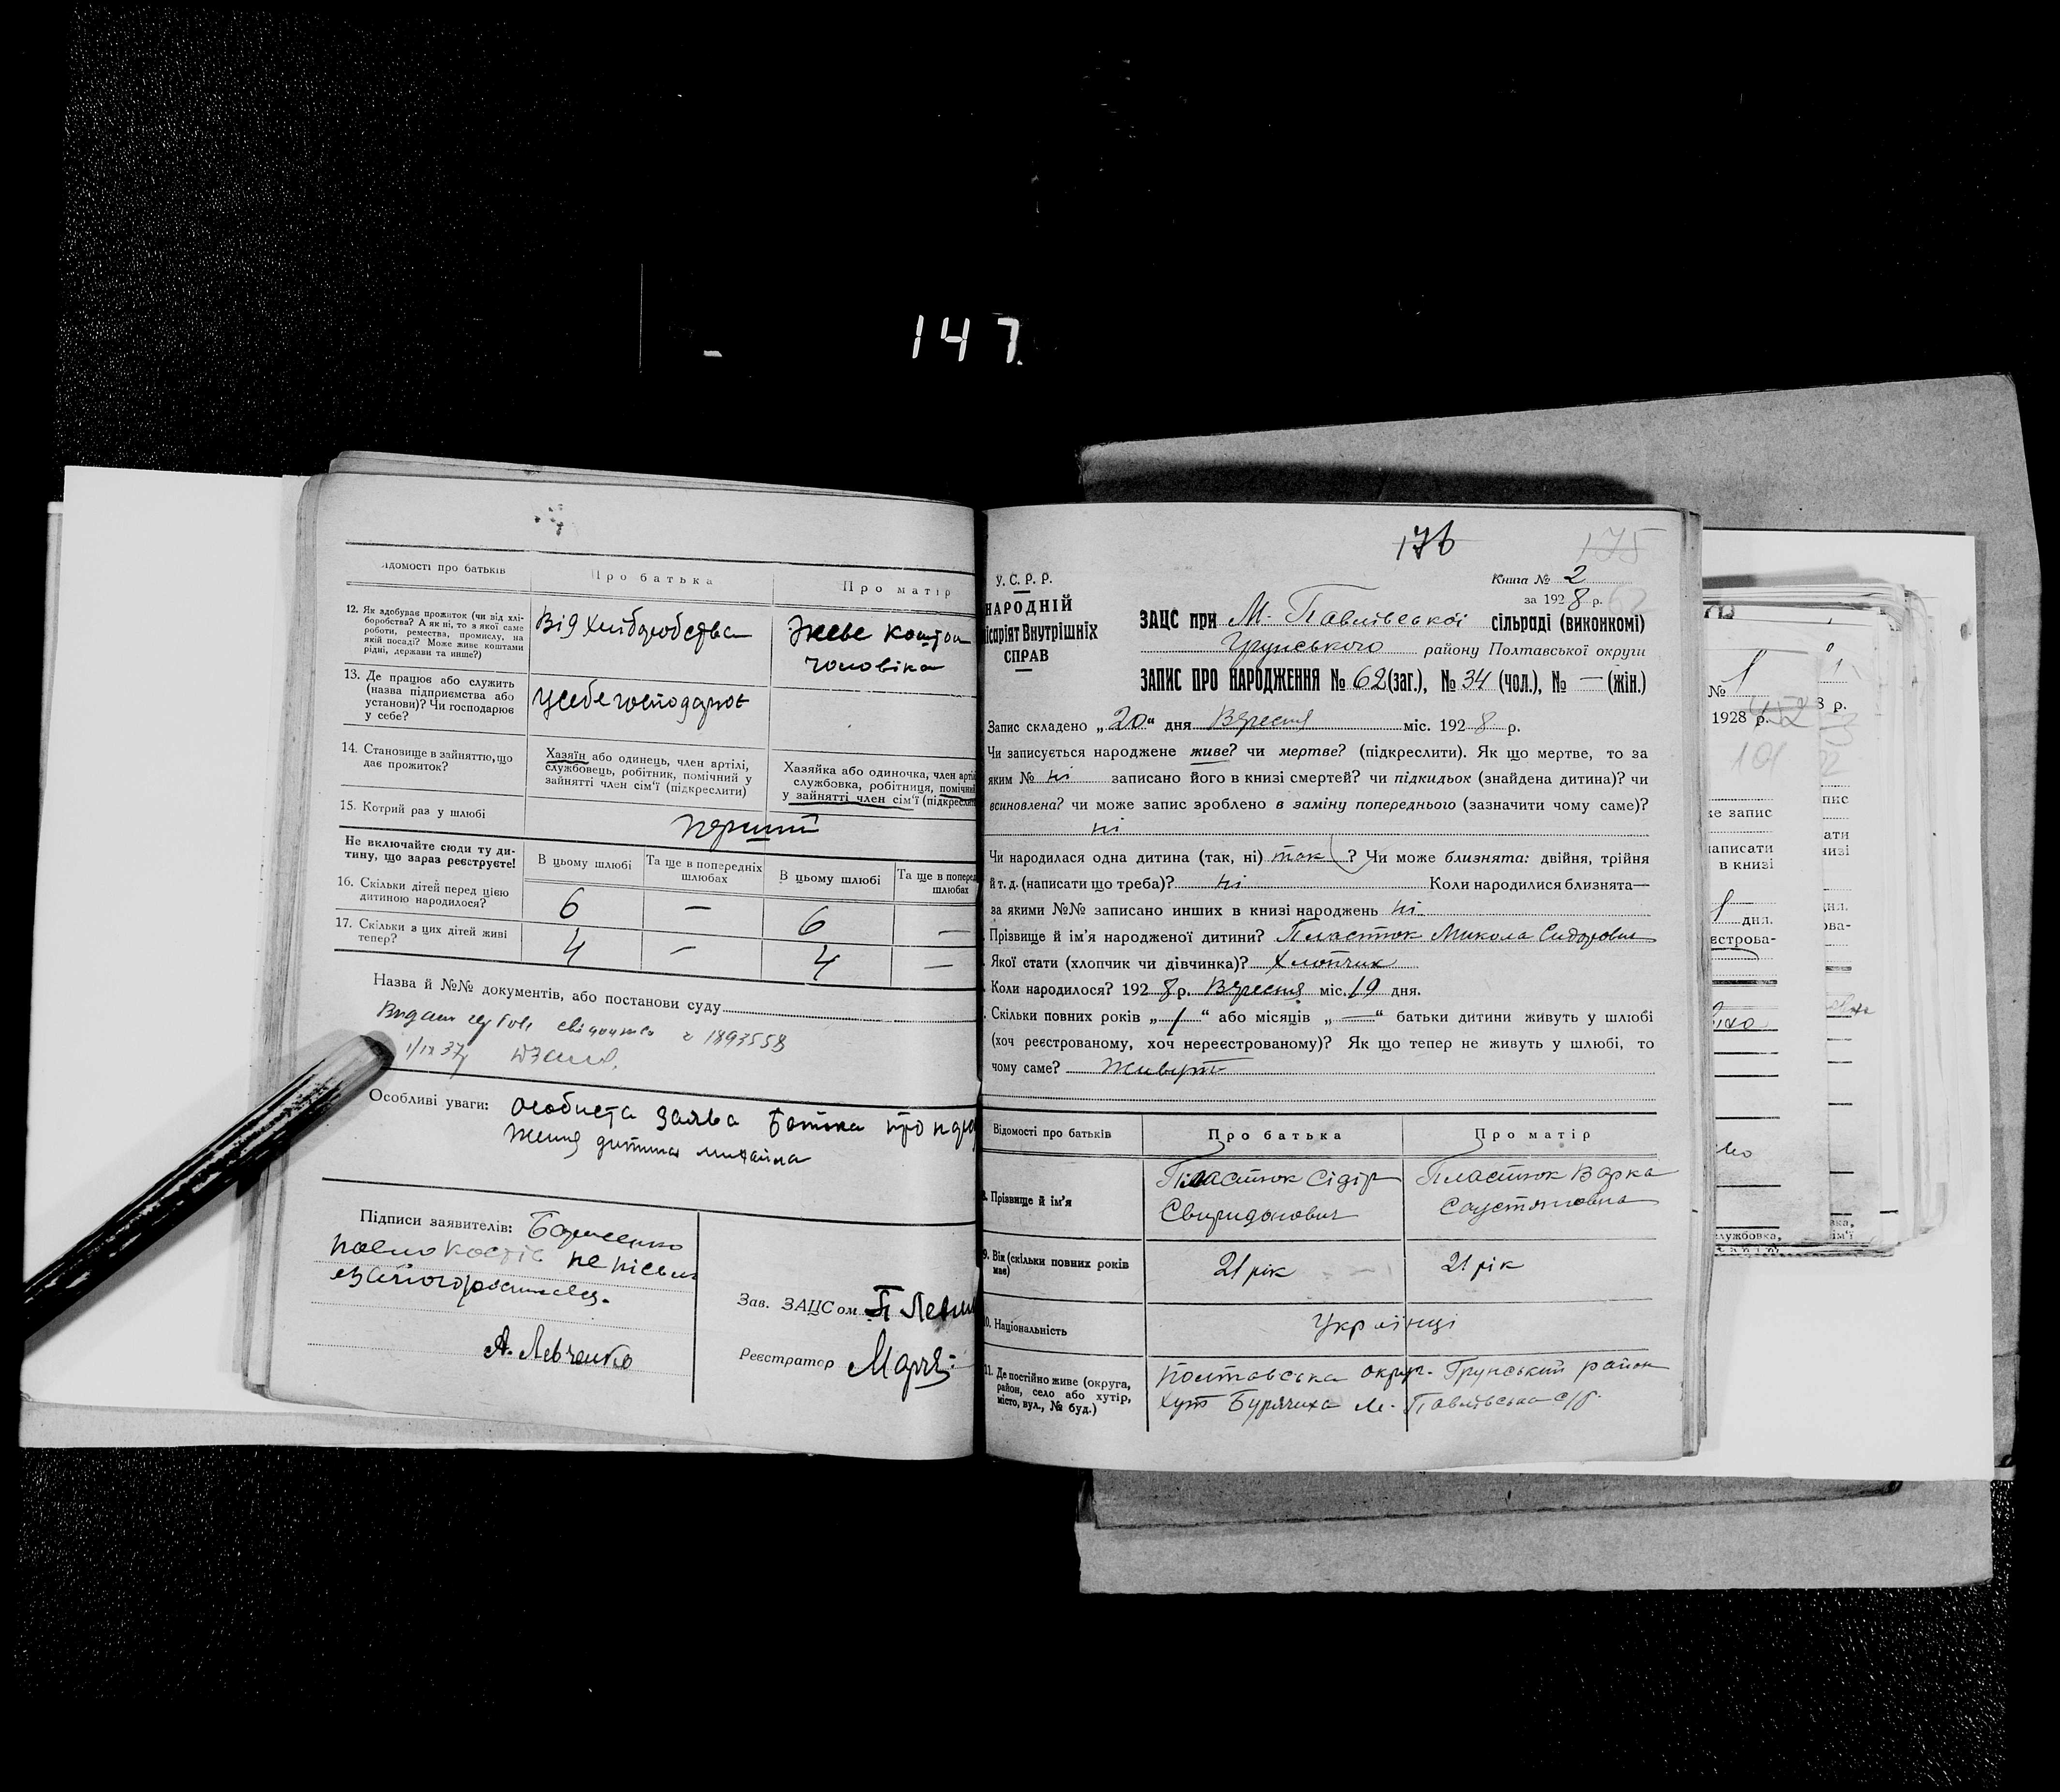 147
Відомості про батьків
Про батька
Про матір
12. Як здобуває прожиток (чи від хлі-
боробства? А як ні, то з якої саме
роботи, ремества, промислу, на
якій посаді? Може живе коштами
рідні, держави та инше?)
Від хліборобства
Живе коштом
чоловіка
13. Де працює або служить
(назва підприємства або
установи)? Чи господарює
у себе?
У себе господарює
14. Становище в зайняттю, що
дає прожиток?
Хазяїн або одинець, член артілі,
службовець, робітник, помічний у
зайнятті член сім'ї (підкреслити)
Хазяйка або одиночка, член арті
службовка, робітниця, помічни
у зайнятті член сім'ї (підкресли
15. Котрий раз у шлюбі
перший
Не включайте сюди ту ди-
тину, що зараз реєструєте!
В цьому шлюбі
Та ще в попередніх
шлюбах
В цьому шлюбі
Та ще в поперед
шлюбах
16. Скільки дітей перед цією
дитиною народилося?
6 — 6 —
17. Скільки з цих дітей живі
тепер?
4 — 4 —
Назва й №№ документів, або постанови суду
1893558
1/IX 37
Особливі уваги: особиста заява батька про
дитини Михайла
Підписи заявителів:
А. Левченко
Зав. ЗАЦСом
Реєстратор
176
175
У. С. Р. Р.
НАРОДНІЙ
місаріят Внутрішніх
СПРАВ
Книга № 2
за 1928 р.
62
ЗАЦС при М-Павлівської сільраді (виконкомі)
Грунського району Полтавської округи
ЗАПИС ПРО НАРОДЖЕННЯ № 62 (заг.), № 34 (чол.), № — (жін.)
Запис складено „20“ дня Вересня міс. 1928 р.
Чи записується народжене живе? чи мертве? (підкреслити). Як що мертве, то за
яким № ні записано його в книзі смертей? чи підкидьок (знайдена дитина)? чи
всиновлена? чи може запис зроблено в заміну попереднього (зазначити чому саме)?
ні
Чи народилася одна дитина (так, ні) так ? Чи може близнята: двійня, трійня
й т. д. (написати що треба)? ні Коли народилися близнята—
за якими №№ записано инших в книзі народжень ні
Прізвище й ім'я народженої дитини? Пластюк Микола Сидорович
Якої стати (хлопчик чи дівчинка)? Хлопчик
Коли народилося? 1928 р. Вересня міс. 19 дня.
Скільки повних років „1“ або місяців „—“ батьки дитини живуть у шлюбі
(хоч реєстрованому, хоч нереєстрованому)? Як що тепер не живуть у шлюбі, то
чому саме? Живуть
Відомості про батьків
Про батька
Про матір
Прізвище й ім'я
Пластюк Сідір
Свиридонович
Пластюк Варка
9. Вік (скільки повних років
має)
21 рік
21 рік
10. Національність
Українці
11. Де постійно живе (округа,
район, село або хутір,
місто, вул., № буд.)
Полтавська округ. Грунський район
хут Бурячиха М-Павлівська с/р.
№ 1
1928 р.
8 р.
101